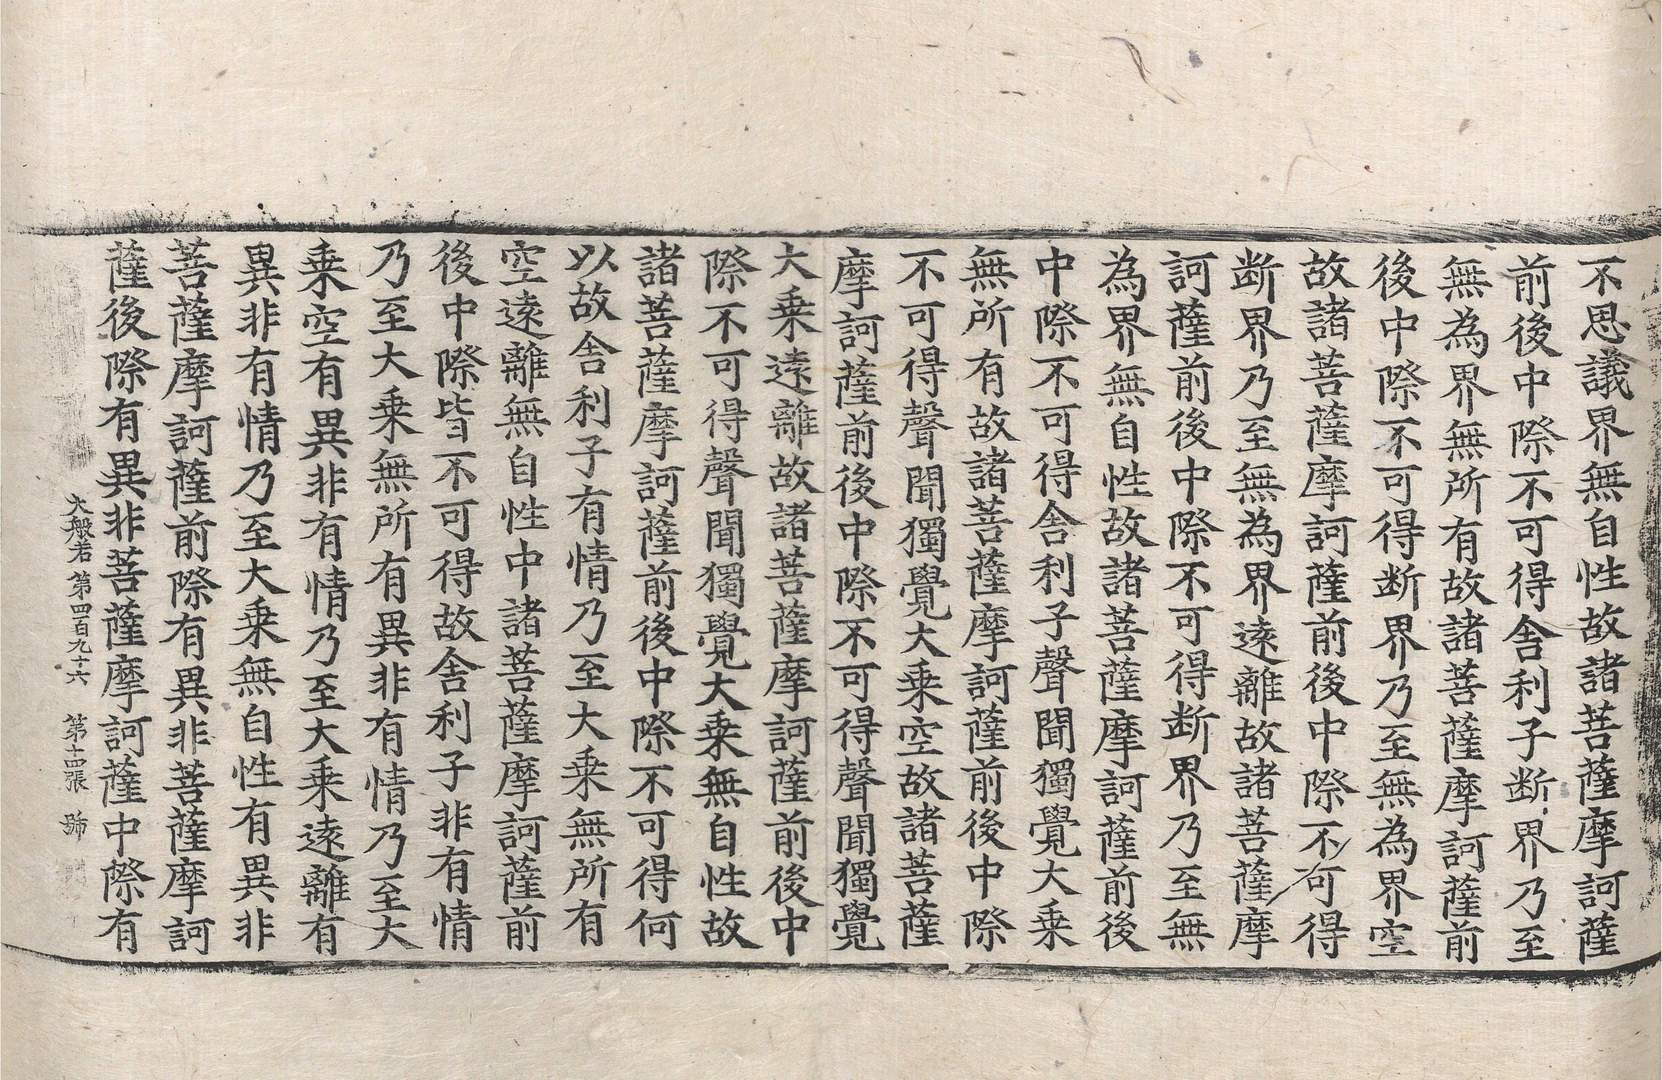 不思議界無自性故諸菩薩摩訶薩
前後中際不可得舍利子断界乃至
無為界無所有故諸菩薩摩訶薩前
後中際不可得断界乃至無為界空
故諸菩薩摩訶薩前後中際不可得
断界乃至無為界遠離故諸菩薩摩
訶薩前後中際不可得断界乃至無
為界無自性故諸菩薩摩訶薩前後
中際不可得舍利子聲聞獨覺大乗
無所有故諸菩薩摩訶薩前後中際
不可得聲聞獨覺大乗空故諸菩薩
摩訶薩前後中際不可得聲聞獨覺
大乗遠離故諸菩薩摩訶薩前後中
際不可得聲聞獨覺大乗無自性故
諸菩薩摩訶薩前後中際不可得何
以故舍利子有情乃至大乗無所有
空遠離無自性中諸菩薩摩訶薩前
後中際皆不可得故舍利子非有情
乃至大乗無所有有異非有情乃至大
乗空有異非有情乃至大乗遠離有
異非有情乃至大乗無自性有異非
菩薩摩訶薩前際有異非菩薩摩訶
薩後際有異非菩薩摩訶薩中際有
大般若 第四百九十六 第十四張 號